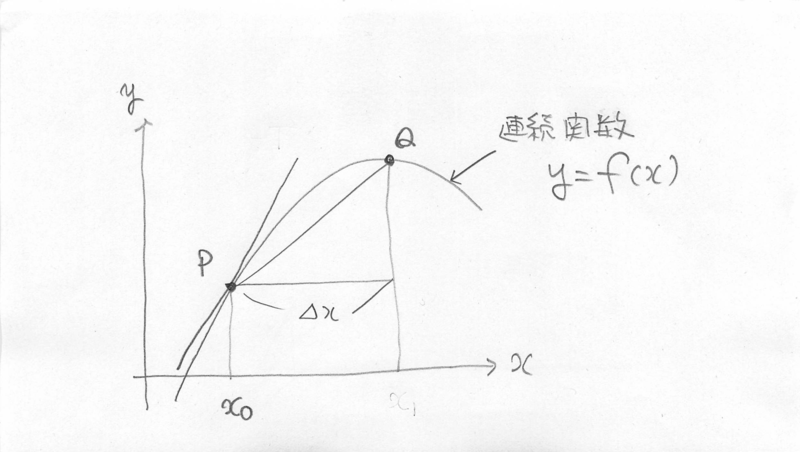 y
Q
連続関数
y=f(x)
P
Δx
x
x₀
x₁